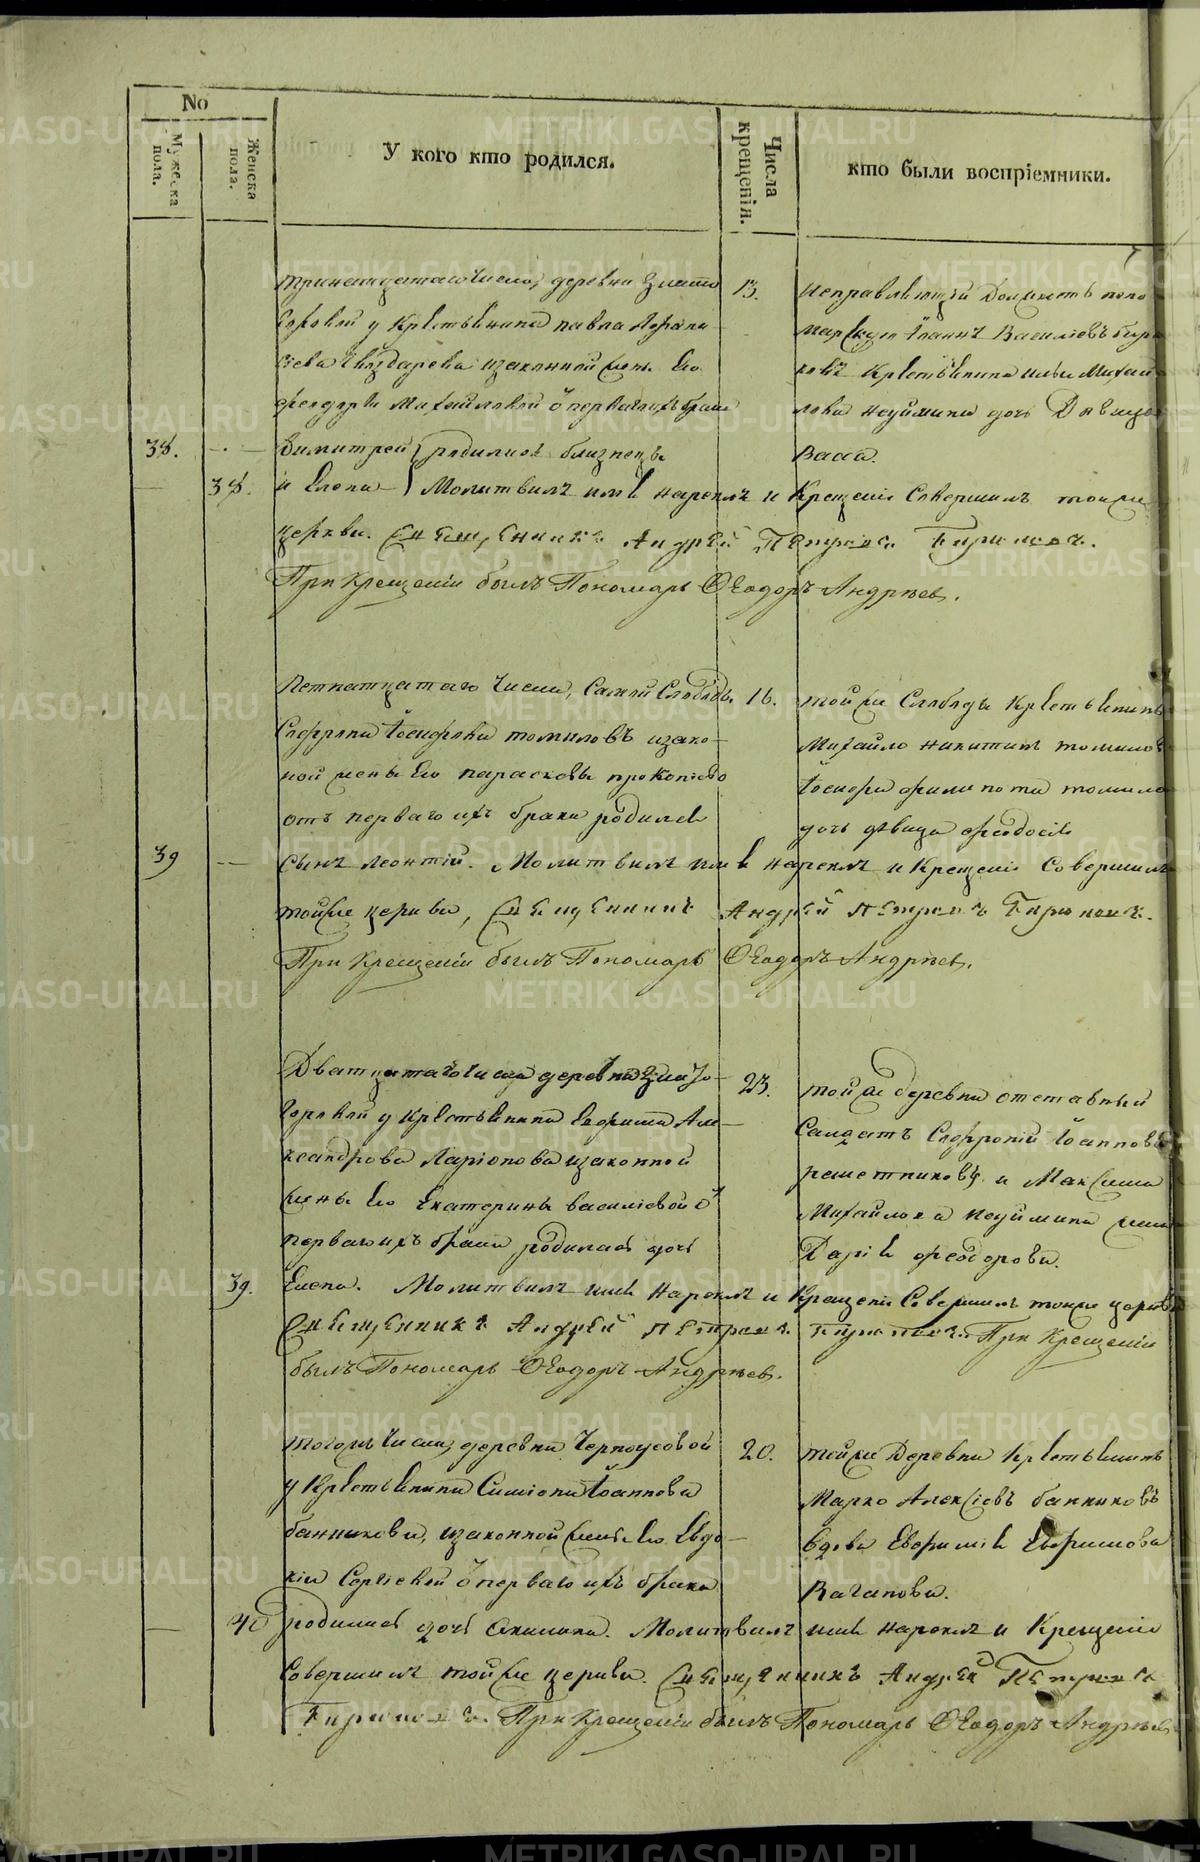 No
Мужеска пола.
Женска пола.
У кого кто родился.
Числа крещенія.
кто были воспріемники.
тринатцатаго числа, деревни Злато
горовой у Крестьянина павла Афана
сіева Гвоздарева изаконной жены Его
феодоры Михайловой о первагоихъ брака
38. Димитрей родились близнецы
38. и Елена Молитвилъ имя нареклъ и Крещеніе Совершилъ тойже
церкви. Священникъ Андрей Петровъ
При Крещеніи былъ Пономарь Ѳеодоръ Андрѣев.
13. исправляющій Должность поно
марскую Іоаннъ Василіевъ
Крестьянина ильи Михай
лова неуймина дочь Дѣвица
Васса.
Петнатцатаго Числа, Самой Слободы
Софрона Іосифова томиловъ изако
ной жены Его парасковы прокопіево
отъ перваго ихъ брака родился
39 сынъ леонтій. Молитвилъ имя нареклъ и Крещеніе Совершилъ
тойже церкви, Священникъ Андрей Петровъ
При Крещеніи былъ Пономарь Ѳеодоръ Андрѣев.
16. тойже Слободы Крестьянинъ
Михайло никитинъ томилов
Іосифа филипота томилова
дочь дѣвица феодосія
Дватцатаго Числа деревни Злато
горовой у Крестьянина Евфима Але
ксандрова Ларіонова изаконной
жены Его Екатерины василіевой о
перваго ихъ брака родилась дочь
39. Елена. Молитвилъ имя Нареклъ и Крещеніе Совершилъ тойже церкви
Священникъ Андрей Петровъ При Крещеніи
былъ Пономарь Ѳеодоръ Андрѣев.
23. тойже деревни отставный
Салдатъ Софроній Іоанновъ
решетниковъ и Максима
Михайлова неуймина жена
Дарія феодорова.
тогожъ Числа, деревни Черноусовой
у Крестьянина Симіона Іоаннова
банникова, изаконной жены Его Евдо
кіи Сергіевой о перваго ихъ брака
40 родилась дочь Акилина. Молитвилъ имя нареклъ и Крещеніе
Совершилъ тойже церкви Священникъ Андрей Петровъ
При Крещеніи былъ Пономарь Ѳеодоръ Андрѣев
20. тойже Деревни Крестьянинъ
Марко Алексіевъ банниковъ
вдова Евфимія Евфимова
Ваганова.